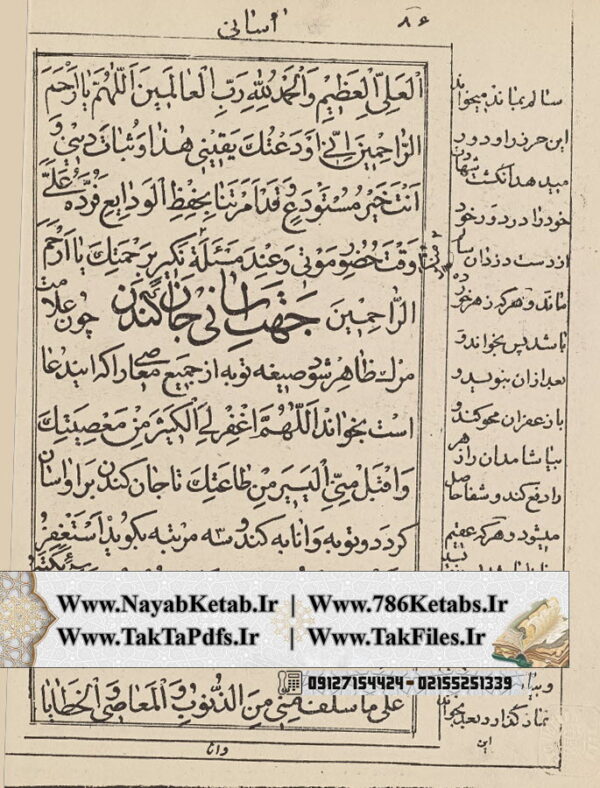 ۸۶
آسانی
العَلِیِّ العَظِیمِ وَالحَمدُ لِلّٰهِ رَبِّ العَالَمِینَ اَللّٰهُمَّ یا اَرحَمَ
الرّاحِمِینَ اِنّی اَودَعتُكَ یَقِینی هٰذا وَثُباتَ دینی وَ
اَنتَ خَیرُ مُستَودَعٍ وَقَد اَمَرتَنا بِحِفظِ الوَدایِعِ فَرُدَّهُ عَلَیَّ
وَقتَ حُضُورِ مَوتی وَعِندَ مَسئَلَةِ نَکیرٍ بِرَحمَتِكَ یا اَرحَمَ
الرّاحِمِینَ جهت آسانی جان کندن چون علامت
مرك ظاهر شود صیغه توبه از جمیع معاصی را که این دعا
است بخواند اَللّٰهُمَّ اغفِر لِیَ الکَثیرَ مِن مَعصِیَتِكَ
وَاقبَل مِنِّی الیَسیرَ مِن طاعَتِكَ تا جان کندن بر او آسان
کردد و توبه و انابه کند و سه مرتبه بکوید اَستَغفِرُ
عَلی ما سَلَفَ مِنّی مِنَ الذُّنُوبِ وَ المَعاصی وَ الخَطایا
وانا
سالم بماند میخواند
این حرز را و دور
میدهد انکشتهای
خود را در دور خود
از دست دزدان سالم
ماند و هر که زهر خورده
باشد پس بخواند و
بعد از آن بنویسد و
با زعفران محو کند و
بیاشامد آن زهر
را دفع کند و شفا حاصل
میشود و هر که عقیم
نماز کذارد و بعد بخواند
این
Www.NayabKetab.Ir | Www.786Ketabs.Ir
Www.TakTaPdfs.Ir | Www.TakFiles.Ir
09127154424 - 02155251339